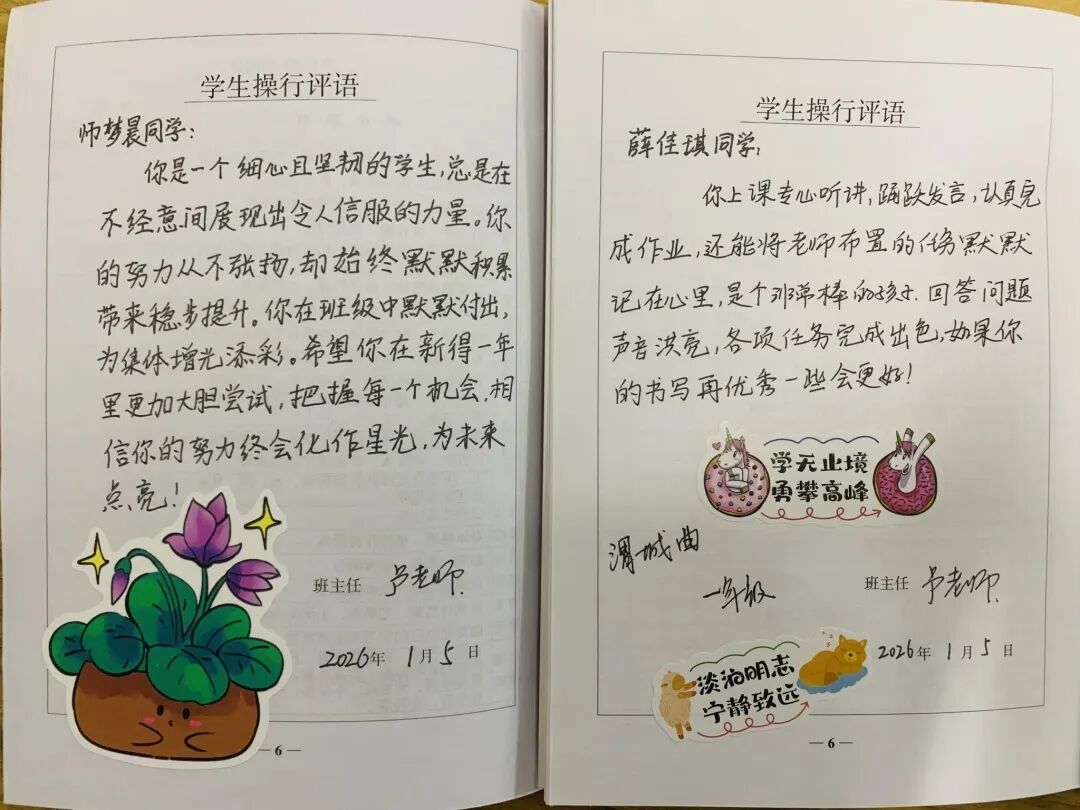 学生操行评语
师梦晨同学：
你是一个细心且坚韧的学生，总是在
不经意间展现出令人信服的力量。你
的努力从不张扬，却始终默默积累
带来稳步提升。你在班级中默默付出，
为集体增光添彩。希望你在新得一年
里更加大胆尝试，把握每一个机会，相
信你的努力终会化作星光，为未来
点亮！
班主任 卢老师.
2026年 1月5日
— 6 —
学生操行评语
薛佳琪同学：
你上课专心听讲，踊跃发言，认真完
成作业，还能将老师布置的任务默默
记在心里，是个顶棒的孩子．回答问题
声音洪亮，各项任务完成出色，如果你
的书写再优秀一些会更好！
学无止境
勇攀高峰
渭城曲
一年级
班主任 卢老师.
2026年 1月5日
淡泊明志
宁静致远
— 6 —